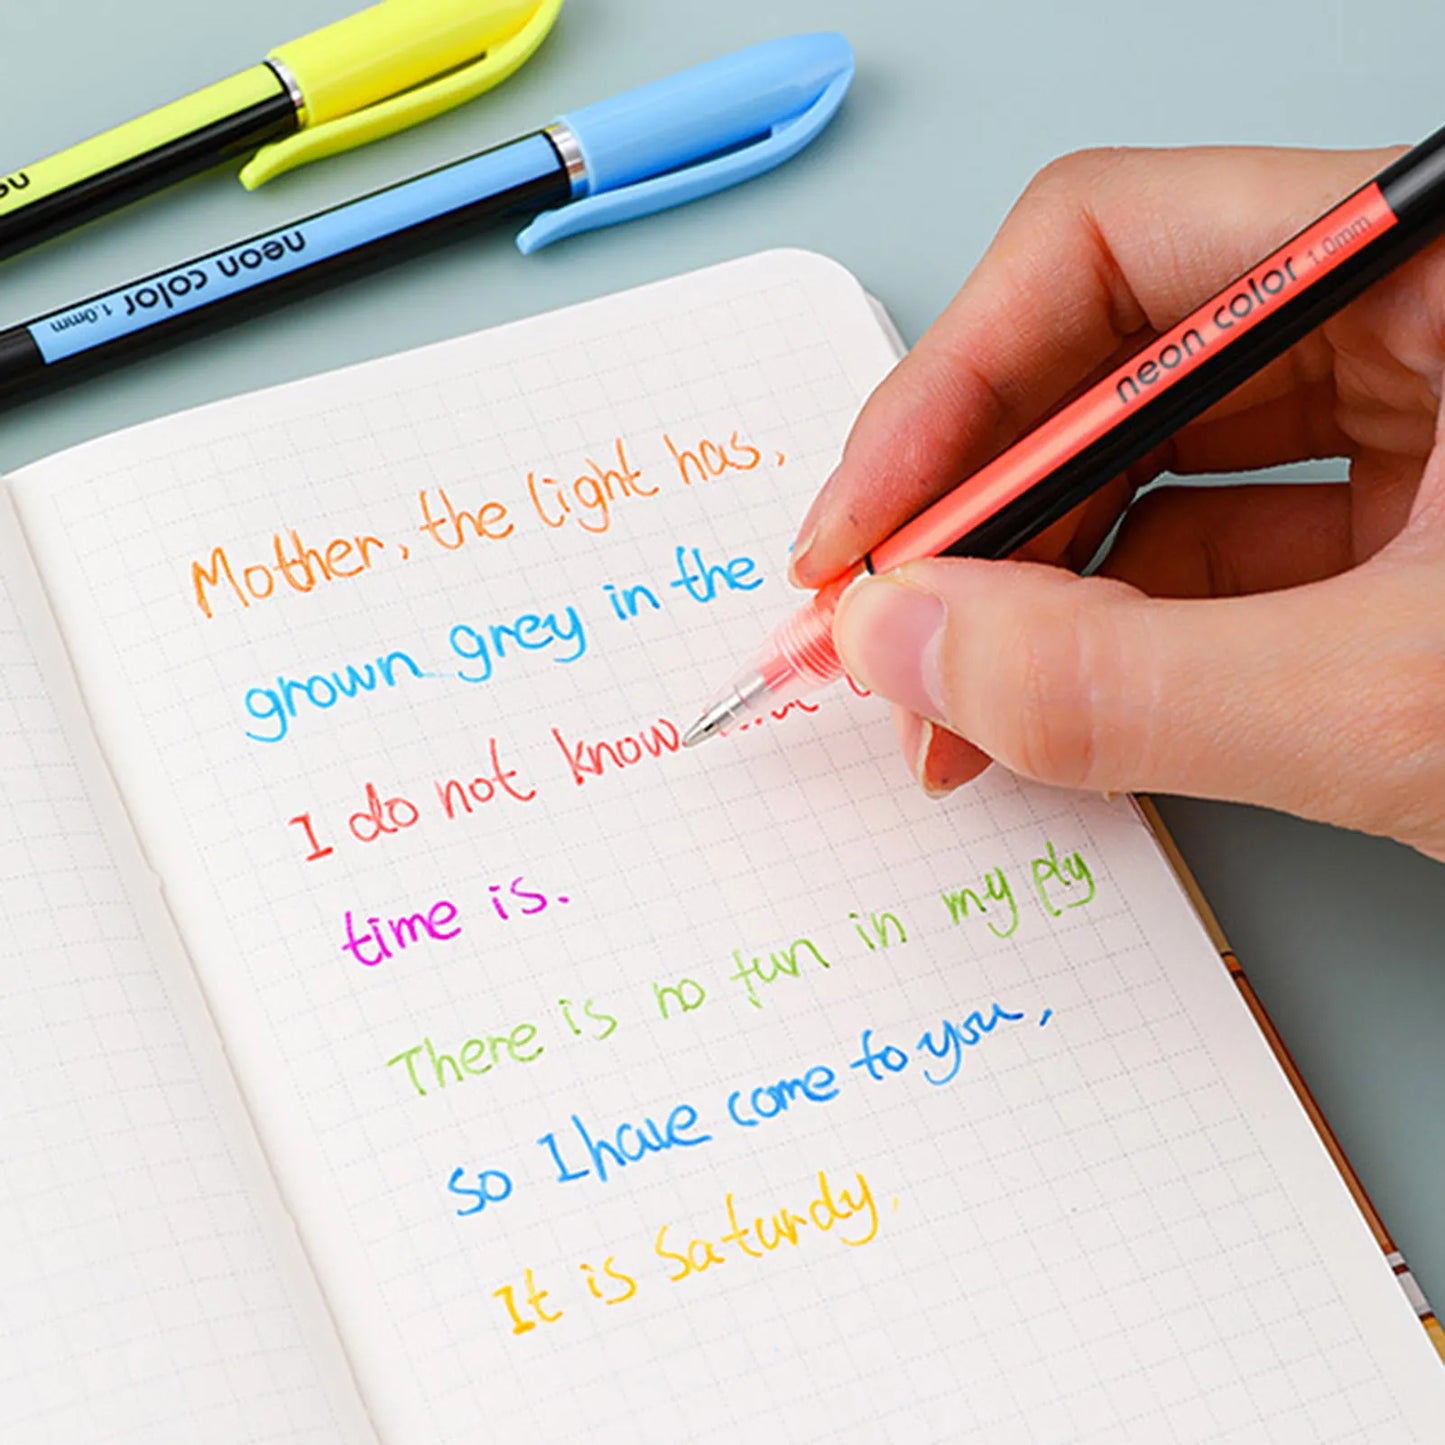 ne
neon color 1.0mm
neon color 1.0mm
Mother, the light has,
grown grey in the
I do not know
time is.
There is no fun in my ply
so I have come to you,
It is Saturdy,